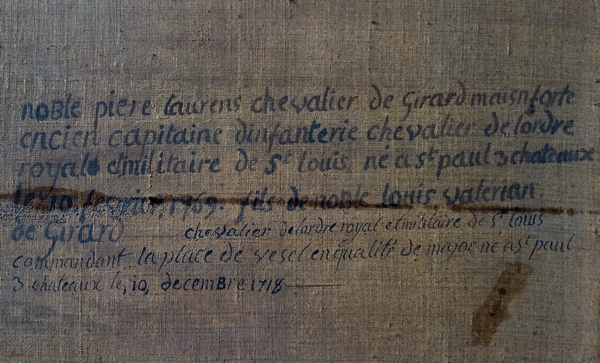 noble piere laurens chevalier de Girard maisnforte
encien capitaine dinfanterie chevalier de lordre
royale etmilitaire de St louis, né a st paul 3 chateaux
le, 10, fevrier, 1769. fils de noble louis valerian
de Girard chevalier de lordre royal et militaire de st louis
commandant la place de vesel en qualité de major né a st paul
3 chateaux le, 10, decembre 1718